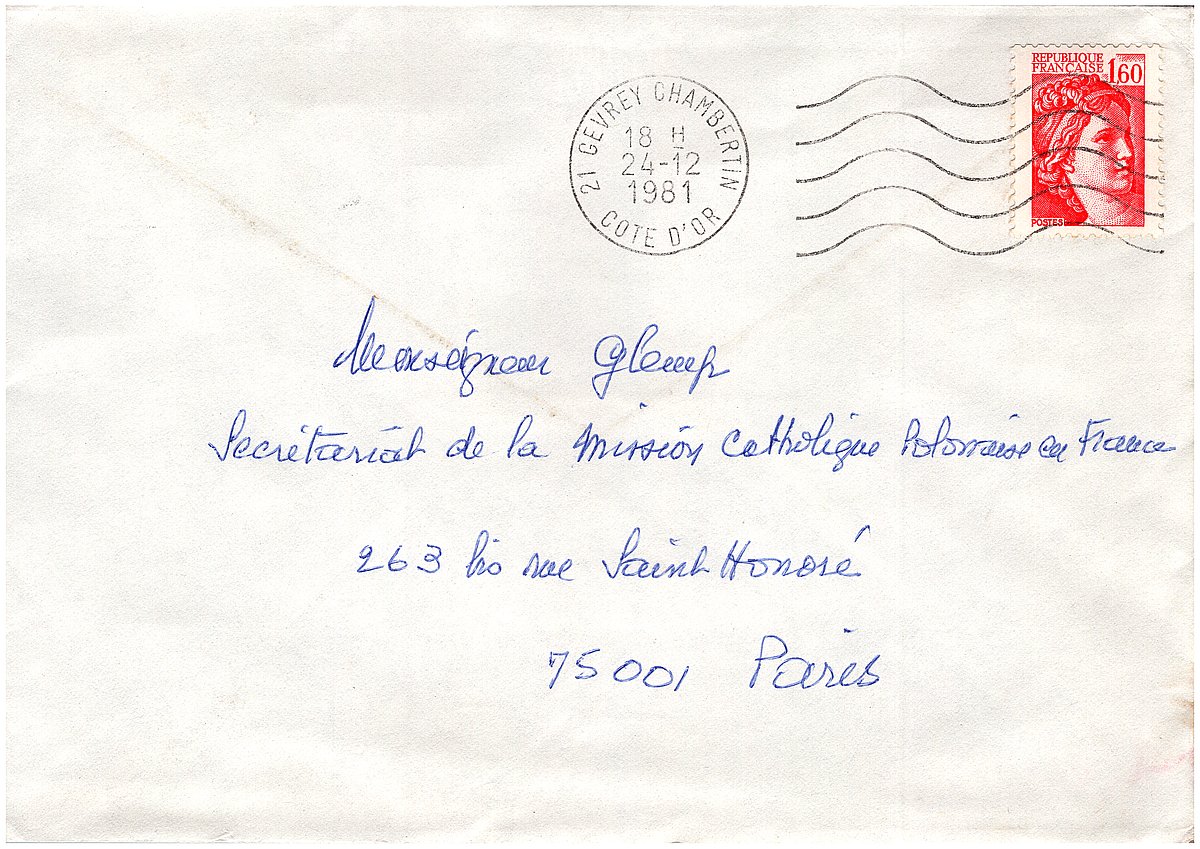 REPUBLIQUE
FRANÇAISE 1,60
POSTES
21 GEVREY CHAMBERTIN
18 H
24-12
1981
COTE D'OR
Monseigneur Glemp
Secrétariat de la Mission Catholique Polonaise en France
263 bis rue Saint Honoré
75001 Paris